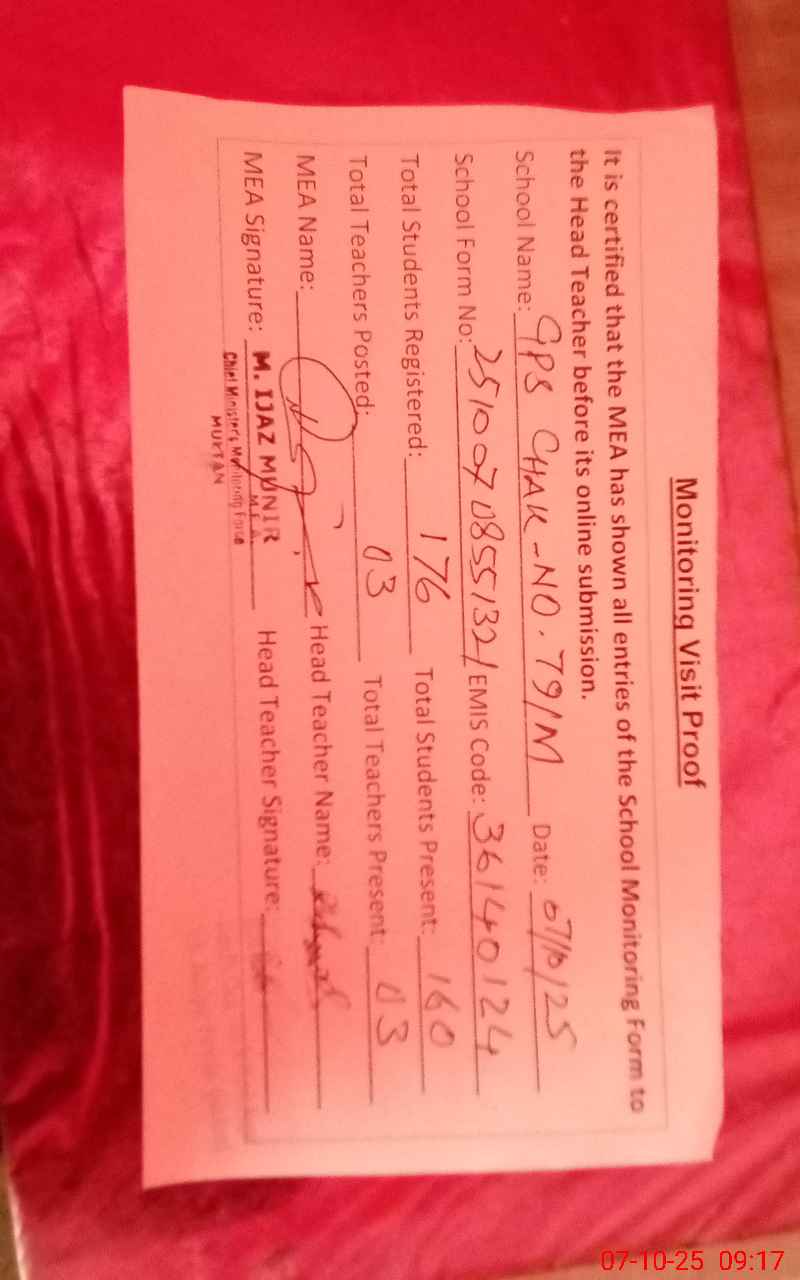 Monitoring Visit Proof
It is certified that the MEA has shown all entries of the School Monitoring Form to
the Head Teacher before its online submission.
School Name: GPS CHAK-NO. 79/M Date: 07/10/25
School Form No: EMIS Code: 36140124
Total Students Registered: 176 Total Students Present: 160
Total Teachers Posted: 03 Total Teachers Present: 03
MEA Name: Head Teacher Name:
MEA Signature: Head Teacher Signature:
M. IJAZ MUNIR
M.E.A.
Chief Ministers Monitoring Force
MULTAN
07-10-25 09:17